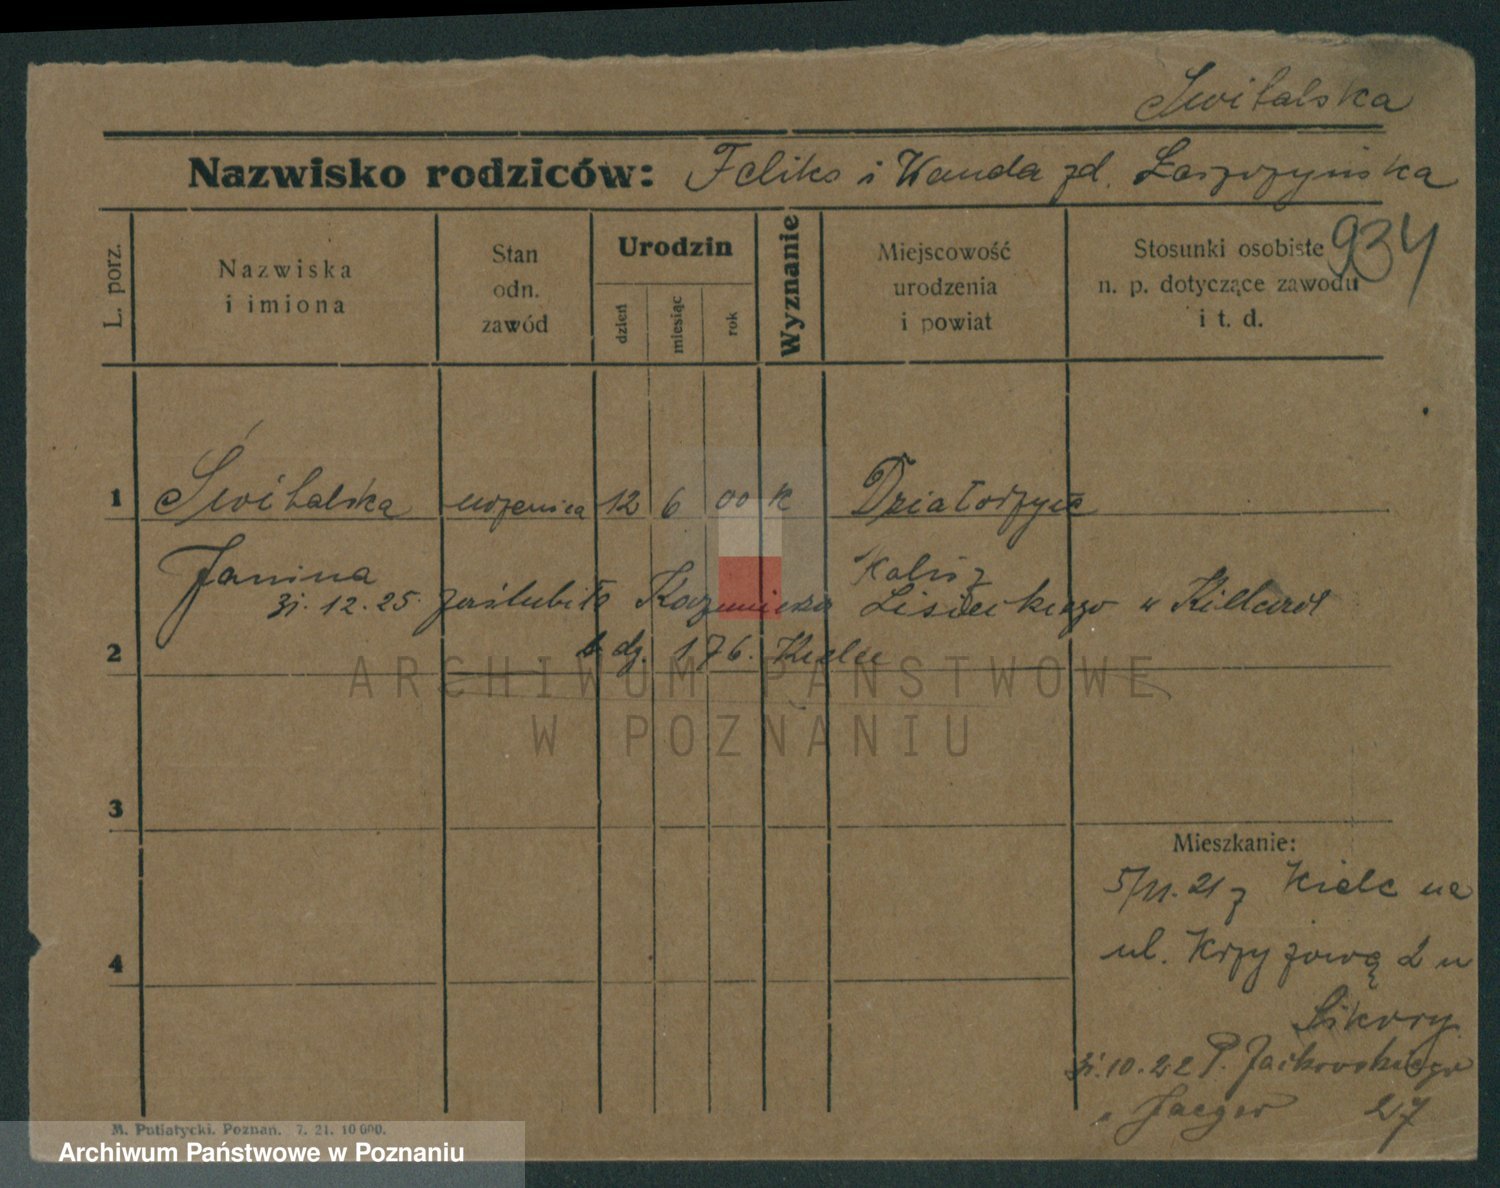 Świtalska
Nazwisko rodziców: Feliks i Wanda zd. Łaszczyńska
934
L. porz.
Nazwiska
i imiona
Stan
odn.
zawód
Urodzin
dzień
miesiąc
rok
Wyznanie
Miejscowość
urodzenia
i powiat
Stosunki osobiste
n. p. dotyczące zawodu
i t. d.
1 Świtalska uczenica 12 6 00 K
Janina Kalisz
31.12.25. zaślubiła Kazimierza Lisieckiego w
2 dz. 176. Kielce
ARCHIWUM PAŃSTWOWE
W POZNANIU
3
Mieszkanie:
5/11.21 z Kielc na
4 ul. Krzyżową 2 u
Sikory
31.10.22 P. Jackowskiego
u Jaeger 27
M. Putiatycki. Poznań. 7. 21. 10 000.
Archiwum Państwowe w Poznaniu